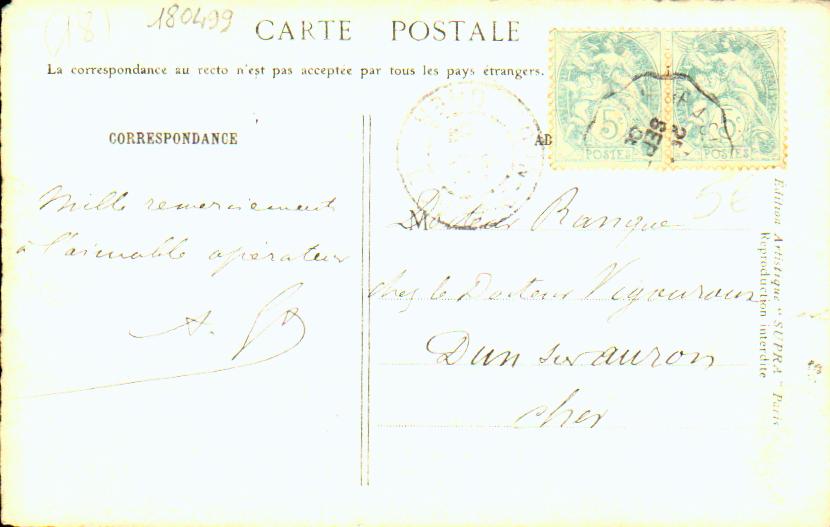 (18)
180499
CARTE POSTALE
La correspondance au recto n'est pas acceptée par tous les pays étrangers.
CORRESPONDANCE
AD
5c
POSTES
5c
POSTES
Mille remerciements
à l'aimable opérateur
A.
M
Docteur Ranque
chez le Docteur Vigouroux
Dun sur auron
Cher
5€
Édition Artistique "SUPRA" Paris
Reproduction interdite